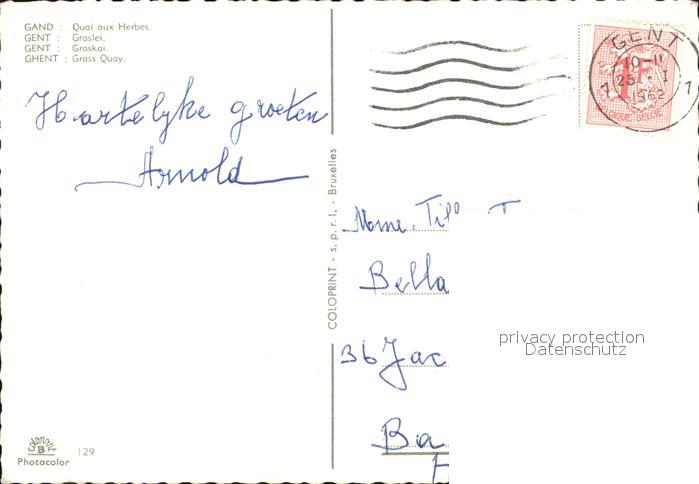 GAND : Quai aux Herbes.
GENT : Graslei.
GENT : Graskai.
GHENT : Grass Quay.
Hartelyke groeten
Arnold
COLOPRINT - s. p. r. l. - Bruxelles
GENT
10-11
25 I
1962
1 1
1F
BELGIQUE BELGIE
Mme.
Bella
36 Jac
Ba
privacy protection
Datenschutz
B
Photocolor
129